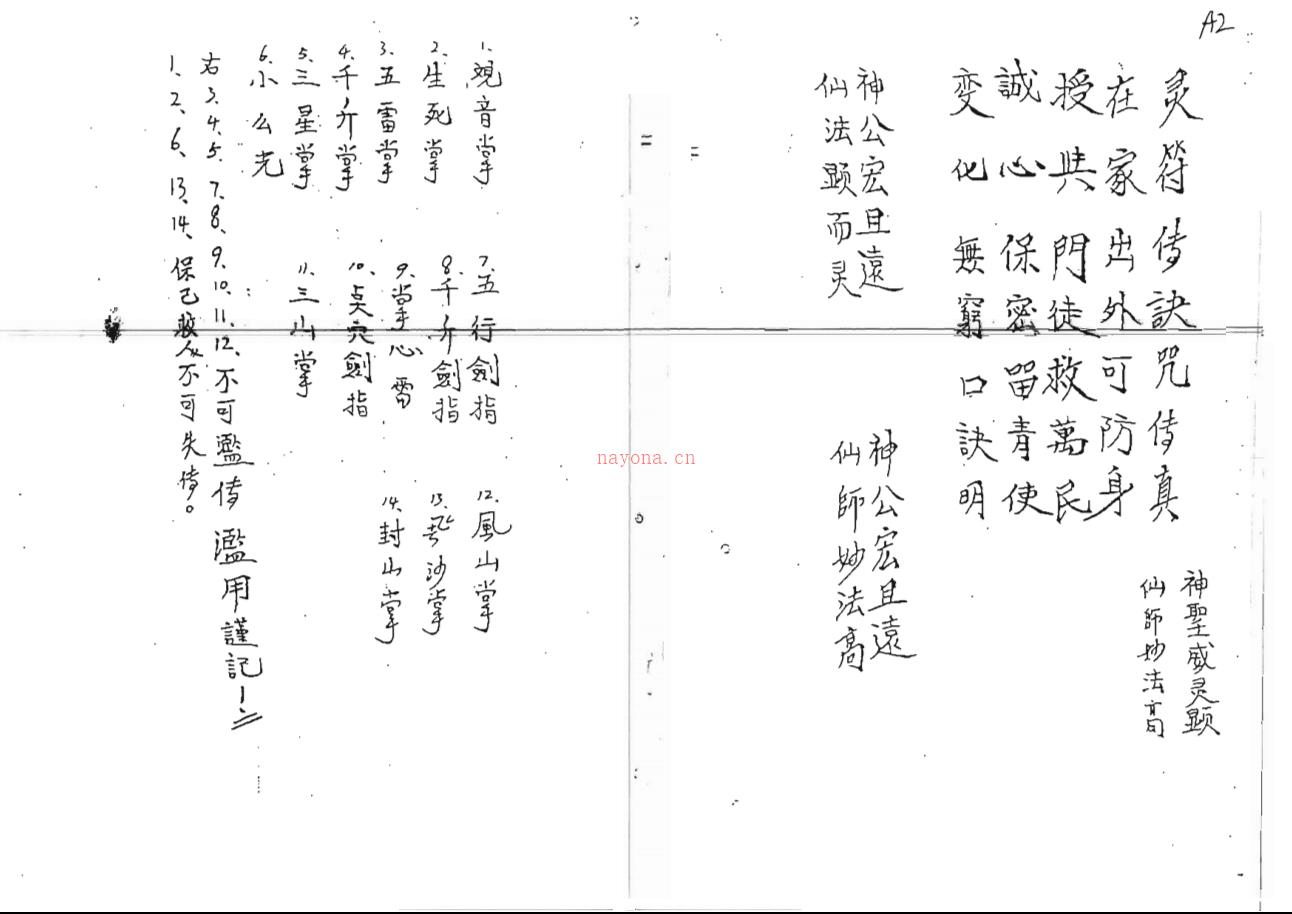 A2
灵符传訣咒传真
在家出外可防身
授與門徒救萬民
誠心保密留青使
变化無窮口訣明
神聖威灵顕
仙師妙法高
神公宏且遠
仙法顕而灵
神公宏且遠
仙師妙法高
1、观音掌
2、生死掌
3、五雷掌
4、千斤掌
5、三星掌
6、小么光
7、五行劍指
8、千斤劍指
9、掌心雷
10、点穴劍指
11、三山掌
12、風山掌
13、飞沙掌
14、封山掌
右3、4、5、7、8、9、10、11、12、不可濫传濫用謹記!
1、2、6、13、14、保己救人不可失传。
nayona.cn